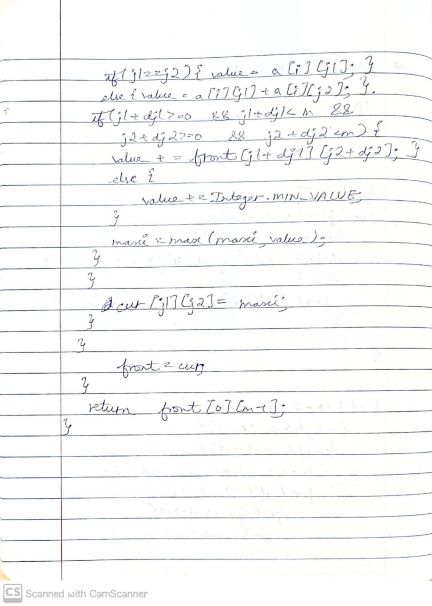 if(j1==j2){ value = a[i][j1]; }
else { value = a[i][j1] + a[i][j2]; }.
if(j1+dj1>=0 && j1+dj1<m &&
j2+dj2>=0 && j2+dj2<m) {
value += front[j1+dj1][j2+dj2]; }
else {
value += Integer.MIN_VALUE;
}
maxi = max (maxi, value);
}
}
cur[j1][j2] = maxi;
}
}
front = cur;
}
return front[0][m-1];
}
CS Scanned with CamScanner